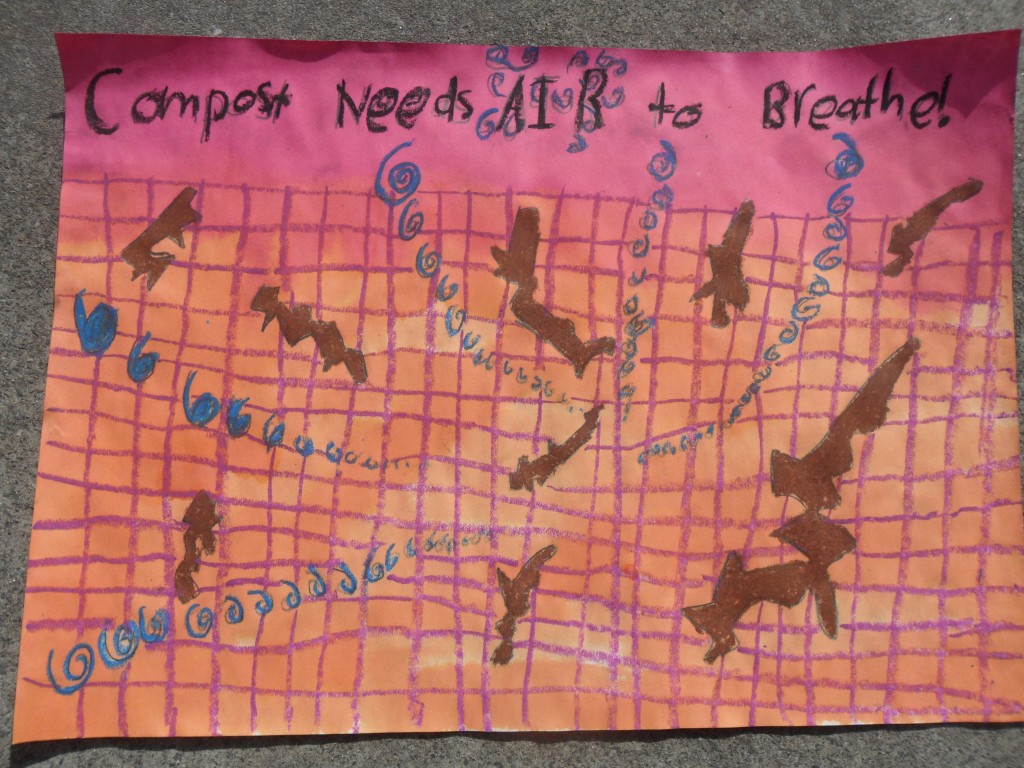 Compost Needs AIR to Breathe!